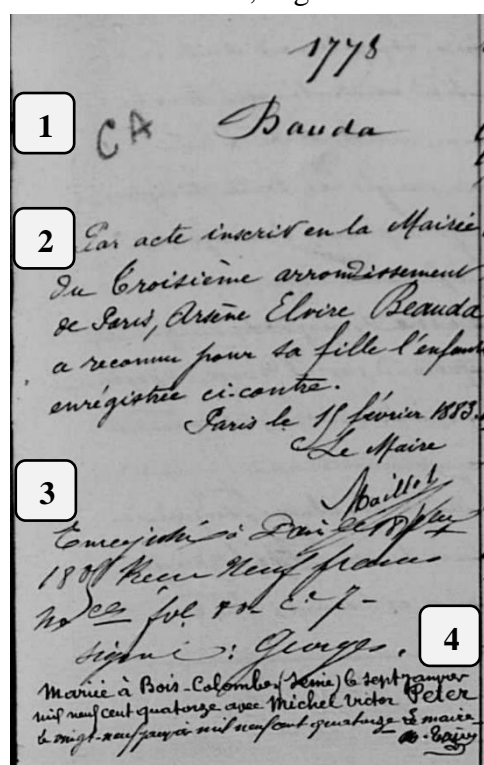 1778
1
CA
Bauda
2
Par acte inscrit en la Mairie
du Troisième arrondissement
de Paris, Arsène Elvire Beauda
a reconnu pour sa fille l'enfant
enrégistrée ci-contre.
Paris le 15 février 1883.
Le Maire
Maillet
3
Enregistré à Paris le
188 Recu Neuf francs
fol. 40 C. 7 -
signé : Georges.
4
Mariée à Bois-Colombes (Seine) le sept janvier
mil neuf cent quatorze avec Michel Victor Peter
le vingt-neuf janvier mil neuf cent quatorze Le maire